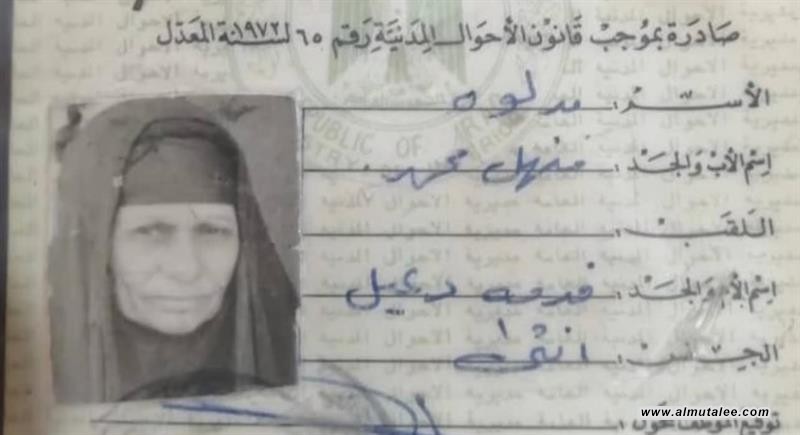 صادرة بموجب قانون الأحوال المدنية رقم ٦٥ لسنة ١٩٧٢ المعدل
الاسم : مدلوه
اسم الأب والجد : منهل محمد
اللقب :
اسم الأم والجد : دعيل
الجنس : انثى
توقيع الموظف المخول :
www.almutalee.com